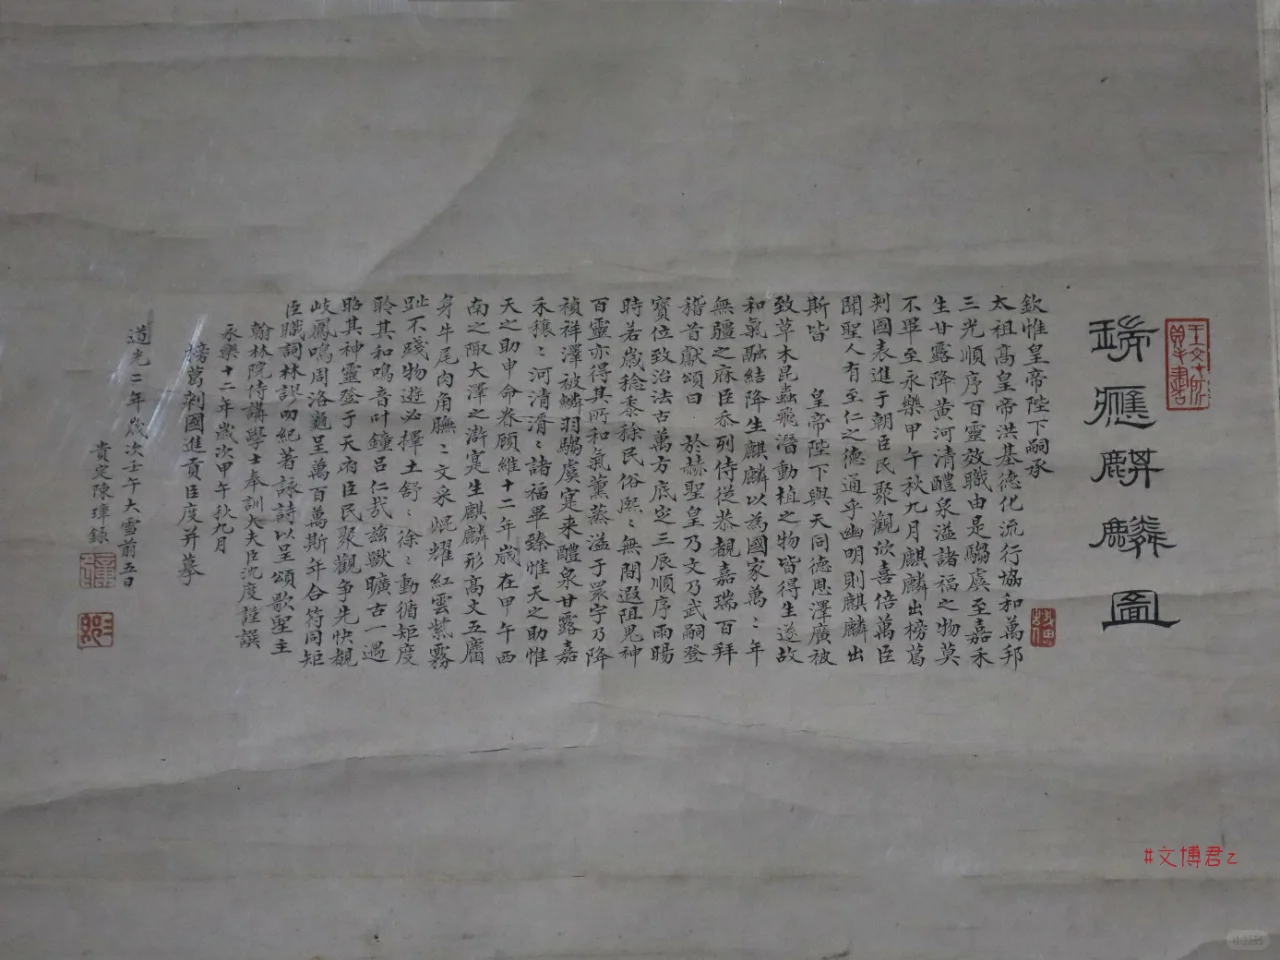 瑞應麒麟圖
欽惟皇帝陛下嗣承
太祖高皇帝洪基德化流行協和萬邦
三光順序百靈效職由是騶虞至嘉禾
生甘露降黃河清醴泉溢諸福之物莫
不畢至永樂甲午秋九月麒麟出榜葛
剌國表進于朝臣民聚觀欣喜倍萬臣
聞聖人有至仁之德通乎幽明則麒麟出
斯皆 皇帝陛下與天同德恩澤廣被
致草木昆蟲飛潛動植之物皆得生遂故
和氣融結降生麒麟以為國家萬〻年
無疆之庥臣忝列侍從恭覩嘉瑞百拜
稽首獻頌曰 於赫聖皇乃文乃武嗣登
寶位致治法古萬方底定三辰順序雨暘
時若歲稔黍稌民俗熙〻無間遐阻鬼神
百靈亦得其所和氣薰蒸溢于寰宇乃降
禎祥澤被鱗羽騶虞寔来醴泉甘露嘉
禾穰〻河清湑〻諸福畢臻惟天之助惟
天之助申命眷顧維十二年歲在甲午西
南之陬大澤之滸寔生麒麟形高丈五麕
身牛尾肉角膴〻文采焜耀紅雲紫霧
趾不踐物遊必擇土舒〻徐〻動循矩度
聆其和鳴音叶鐘呂仁哉兹獸曠古一遇
昭其神靈登于天府臣民聚觀争先快覩
岐鳳鳴周洛龜呈萬百萬斯年合符同矩
臣職詞林謬叨紀著詠詩以呈頌歌聖主
翰林院侍講學士奉訓大夫臣沈度謹譔
永樂十二年歲次甲午秋九月
榜葛剌國進貢臣度并摹
道光二年歲次壬午大雪前五日
貴定陳璋錄
#文博君z